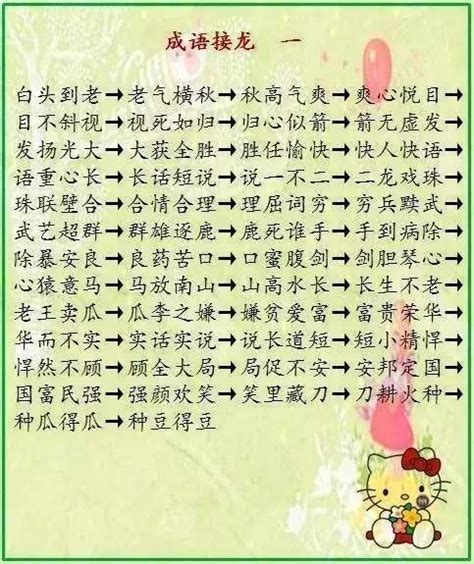 成语接龙 一
白头到老→老气横秋→秋高气爽→爽心悦目→
目不斜视→视死如归→归心似箭→箭无虚发→
发扬光大→大获全胜→胜任愉快→快人快语→
语重心长→长话短说→说一不二→二龙戏珠→
珠联璧合→合情合理→理屈词穷→穷兵黩武→
武艺超群→群雄逐鹿→鹿死谁手→手到病除→
除暴安良→良药苦口→口蜜腹剑→剑胆琴心→
心猿意马→马放南山→山高水长→长生不老→
老王卖瓜→瓜李之嫌→嫌贫爱富→富贵荣华→
华而不实→实话实说→说长道短→短小精悍→
悍然不顾→顾全大局→局促不安→安邦定国→
国富民强→强颜欢笑→笑里藏刀→刀耕火种→
种瓜得瓜→种豆得豆